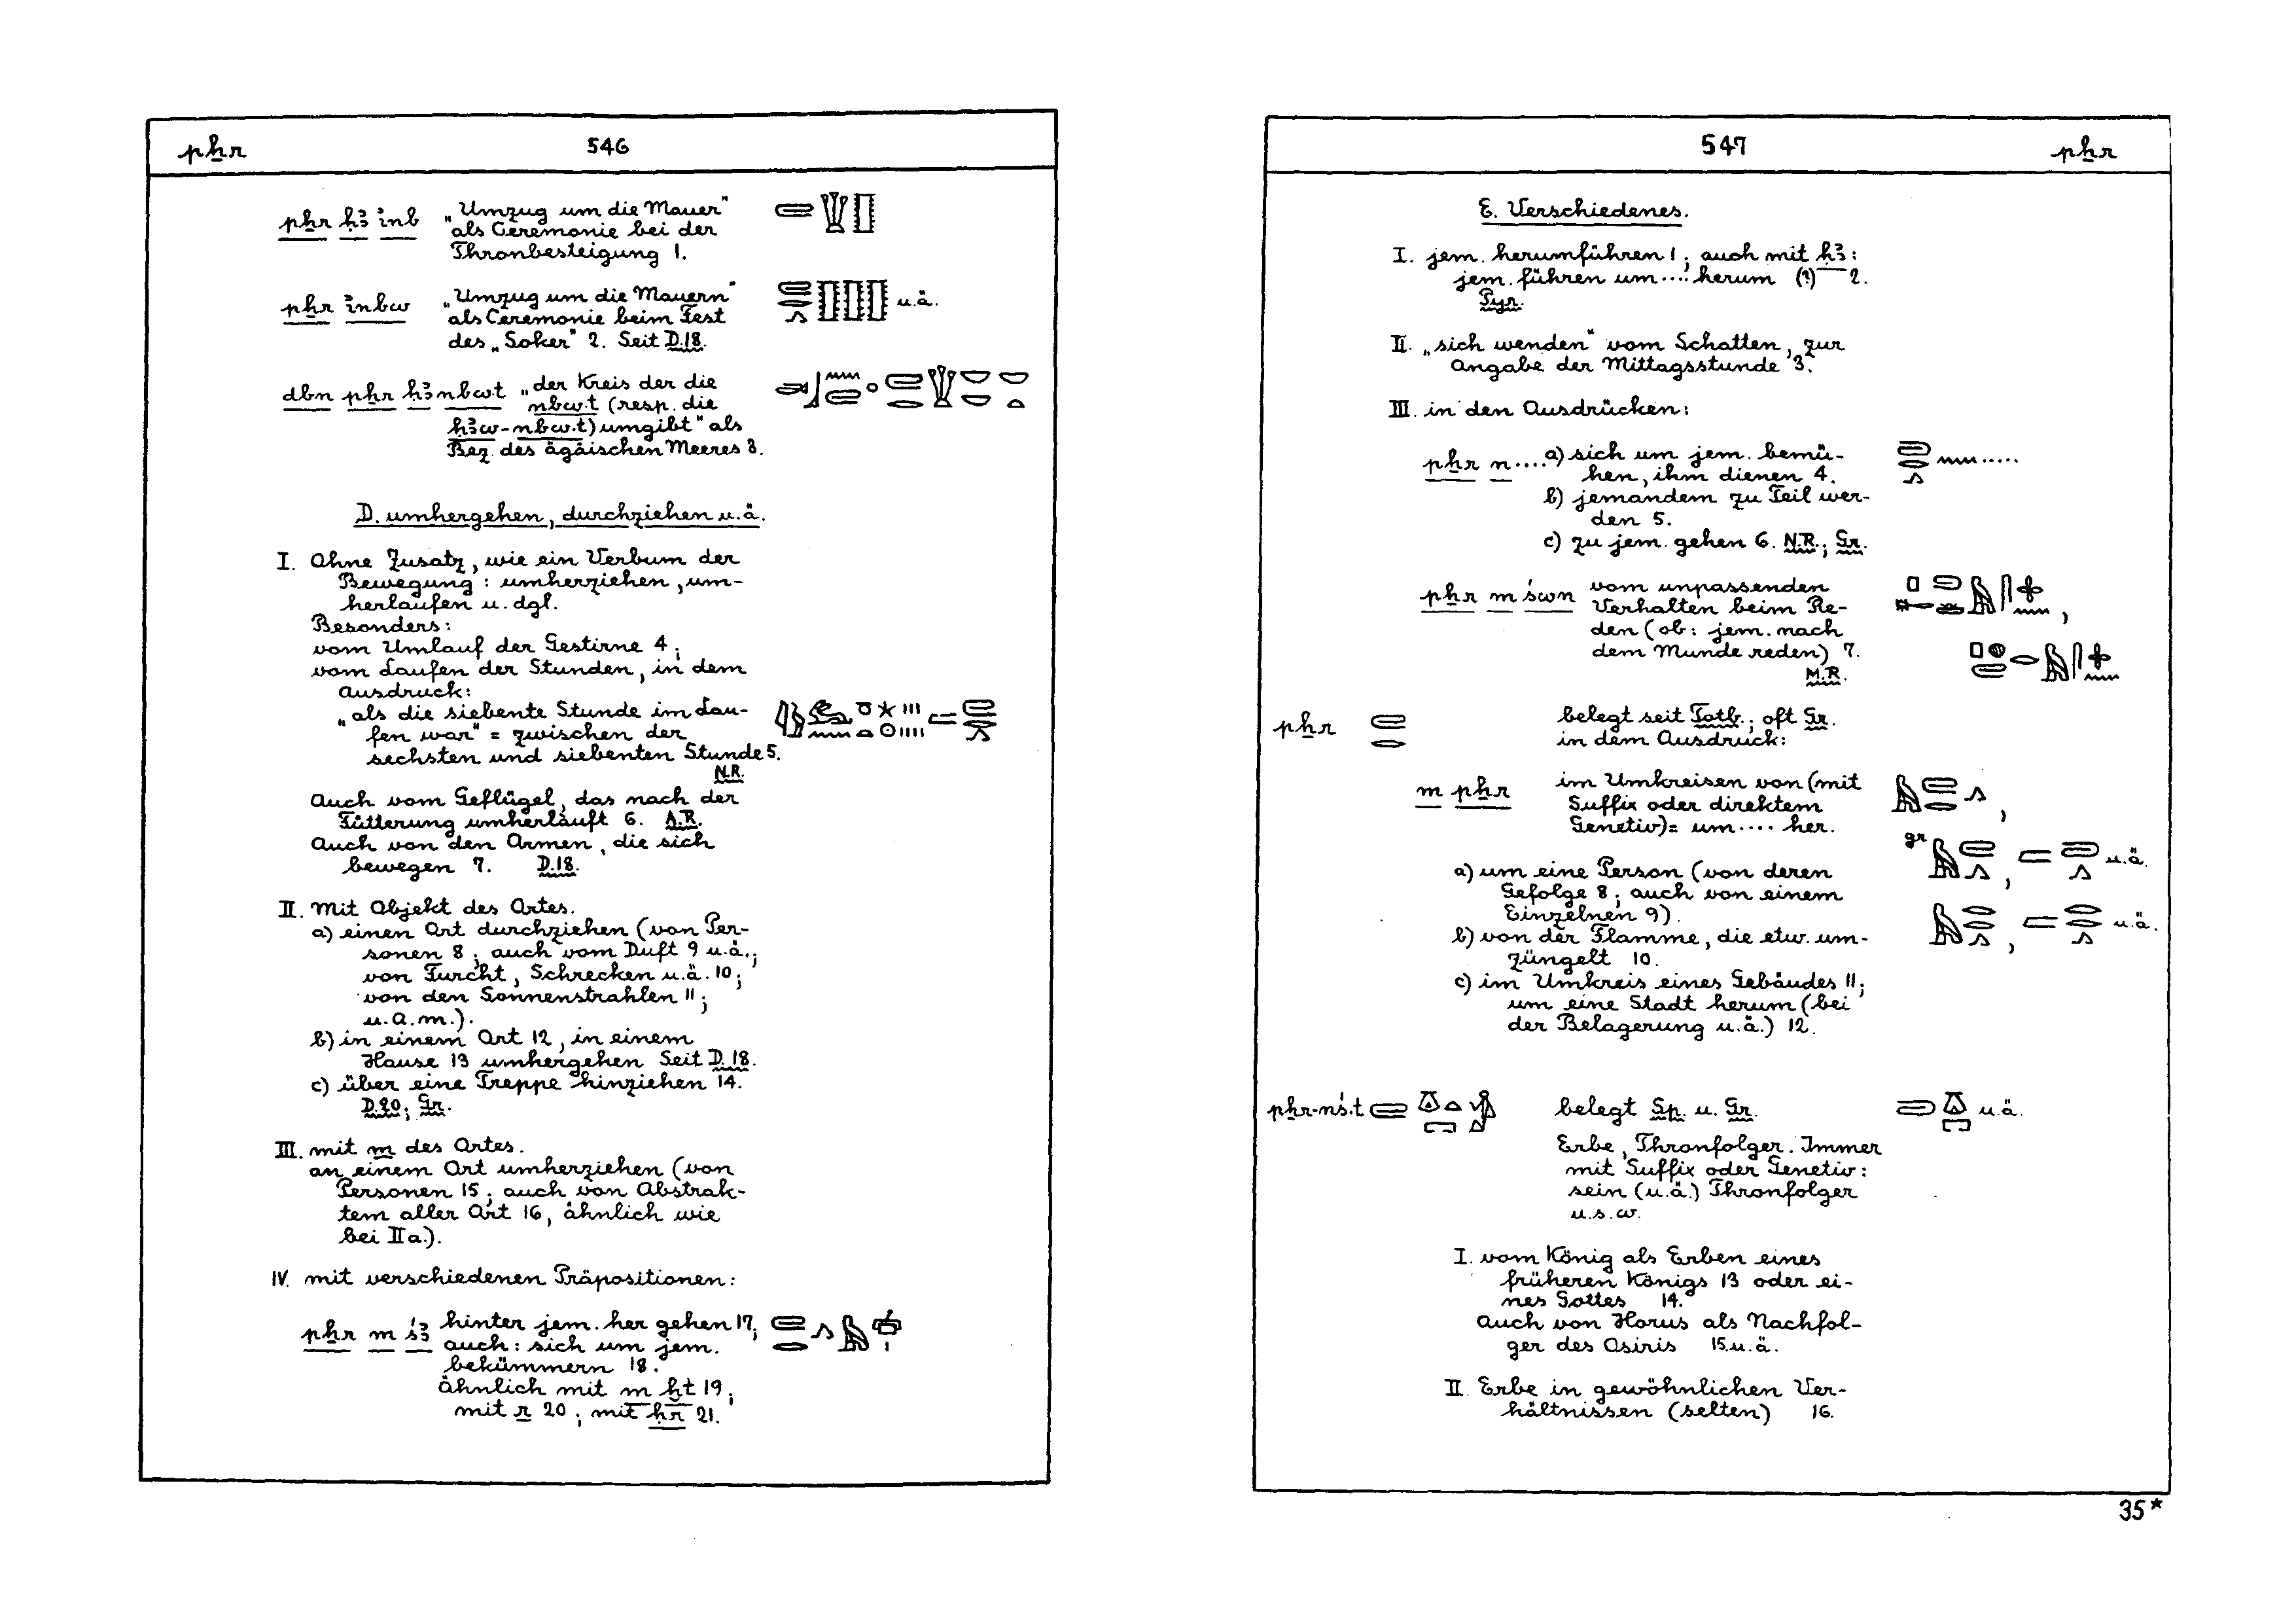 pẖr 546
pẖr ḥꜣ inb „Umzug um die Mauer"
als Ceremonie bei der
Thronbesteigung 1.
pẖr inbw „Umzug um die Mauern" u.ä.
als Ceremonie beim Fest
des „Soker" 2. Seit D.18.
dbn pẖr ḥꜣ nbw.t „der Kreis der die
nbw.t (resp. die
ḥꜣw-nbw.t) umgibt" als
Bez. des ägäischen Meeres 3.
D. umhergehen, durchziehen u.ä.
I. Ohne Zusatz, wie ein Verbum der
Bewegung: umherziehen, um-
herlaufen u. dgl.
Besonders:
vom Umlauf der Gestirne 4;
vom Laufen der Stunden, in dem
Ausdruck:
„als die siebente Stunde im Lau-
fen war" = zwischen der
sechsten und siebenten Stunde 5.
N.R.
Auch vom Geflügel, das nach der
Fütterung umherläuft 6. A.R.
Auch von den Armen, die sich
bewegen 7. D.18.
II. Mit Objekt des Ortes.
a) einen Ort durchziehen (von Per-
sonen 8; auch vom Duft 9 u.ä.;
von Furcht, Schrecken u.ä. 10;
von den Sonnenstrahlen 11;
u.a.m.).
b) in einem Ort 12, in einem
Hause 13 umhergehen Seit D.18.
c) über eine Treppe hinziehen 14.
D.20; Gr.
III. mit m des Ortes.
an einem Ort umherziehen (von
Personen 15; auch von Abstrak-
tem aller Art 16, ähnlich wie
bei IIa).
IV. mit verschiedenen Präpositionen:
pẖr m śꜣ hinter jem. her gehen 17;
auch: sich um jem.
bekümmern 18.
ähnlich mit m ḫt 19;
mit r 20; mit ḥr 21.
547 pẖr
E. Verschiedenes.
I. jem. herumführen 1; auch mit ḥꜣ:
jem. führen um .... herum (?) 2.
Pyr.
II. „sich wenden" vom Schatten, zur
Angabe der Mittagsstunde 3.
III. in den Ausdrücken:
pẖr n .... a) sich um jem. bemü-
hen, ihm dienen 4.
b) jemandem zu Teil wer-
den 5.
c) zu jem. gehen 6. N.R.; Gr.
pẖr m śwn vom unpassenden
Verhalten beim Re-
den (ob: jem. nach
dem Munde reden) 7.
M.R.
pẖr belegt seit Totb.; oft Gr.
in dem Ausdruck:
m pẖr im Umkreisen von (mit
Suffix oder direktem
Genetiv) = um .... her.
gr u.ä.
a) um eine Person (von deren
Gefolge 8; auch von einem
Einzelnen 9).
u.ä.
b) von der Flamme, die etw. um-
züngelt 10.
c) im Umkreis eines Gebäudes 11;
um eine Stadt herum (bei
der Belagerung u.ä.) 12.
pẖr-nś.t belegt Sp. u. Gr. u.ä.
Erbe, Thronfolger. Immer
mit Suffix oder Genetiv:
sein (u.ä.) Thronfolger
u.s.w.
I. vom König als Erben eines
früheren Königs 13 oder ei-
nes Gottes 14.
Auch von Horus als Nachfol-
ger des Osiris 15 u.ä.
II. Erbe in gewöhnlichen Ver-
hältnissen (selten) 16.
35*